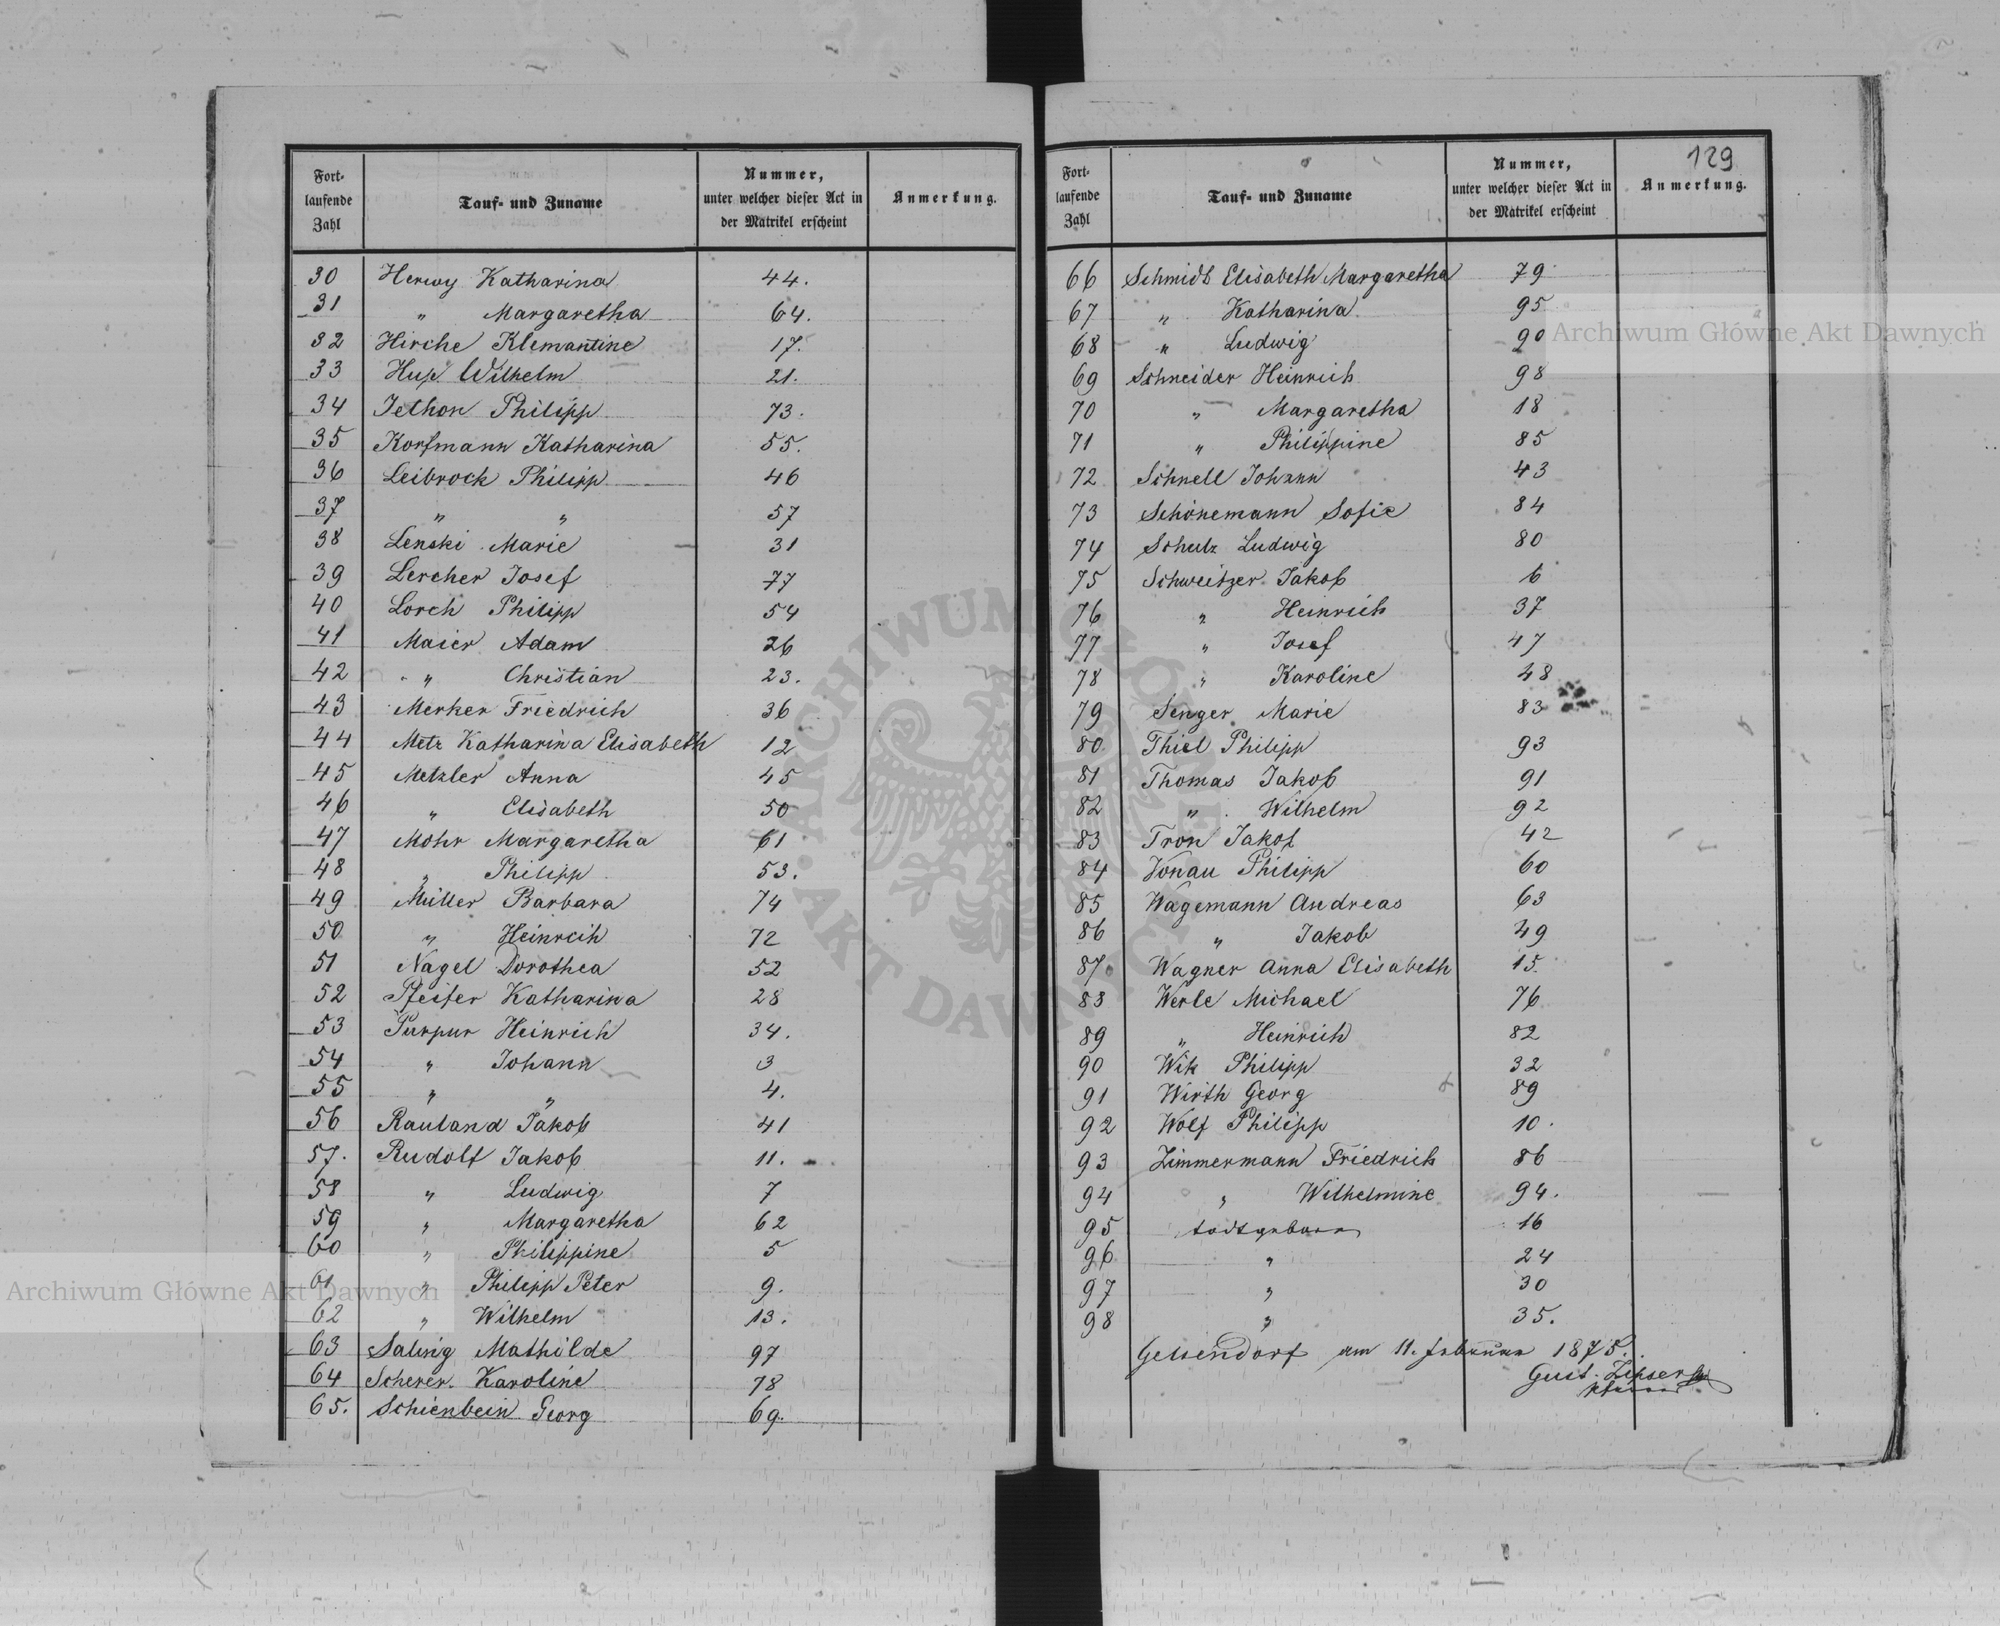 Fort-
laufende
Zahl
Tauf- und Zuname
Nummer,
unter welcher dieser Act in
der Matrikel erscheint
Anmerkung.
30 Herwy Katharina 44.
31 " Margaretha 64.
32 Hirche Klemantine 17.
33 Hup Wilhelm 21.
34 Jethon Philipp 73.
35 Korfmann Katharina 55.
36 Leibrock Philipp 46
37 " " 57
38 Lenski Marie 31
39 Lercher Josef 77
40 Lorch Philipp 54
41 Maier Adam 26
42 " Christian 23.
43 Merker Friedrich 36
44 Metz Katharina Elisabeth 12
45 Metzler Anna 45
46 " Elisabeth 50
47 Mohr Margaretha 61
48 " Philipp 53.
49 Müller Barbara 74
50 " Heinrich 72
51 Nagel Dorothea 52
52 Pfeifer Katharina 28
53 Purpur Heinrich 34.
54 " Johann 3
55 " " 4.
56 Rauland Jakob 41
57. Rudolf Jakob 11.
58 " Ludwig 7
59 " Margaretha 62
60 " Philippine 5
61 " Philipp Peter 9.
62 " Wilhelm 13.
63 Saling Mathilde 97
64 Scherer Karoline 78
65. Schienbein Georg 69.
129
Fort-
laufende
Zahl
Tauf- und Zuname
Nummer,
unter welcher dieser Act in
der Matrikel erscheint
Anmerkung.
66 Schmidt Elisabeth Margaretha 79
67 " Katharina 95
68 " Ludwig 90
69 Schneider Heinrich 98
70 " Margaretha 18
71 " Philippine 85
72 Schnell Johann 43
73 Schönemann Sofie 84
74 Schulz Ludwig 80
75 Schweitzer Jakob 6
76 " Heinrich 37
77 " Josef 47
78 " Karoline 48
79 Senger Marie 83
80 Thiel Philipp 93
81 Thomas Jakob 91
82 " Wilhelm 92
83 Tron Jakob 42
84 Vonau Philipp 60
85 Wagemann Andreas 63
86 " Jakob 49
87 Wagner Anna Elisabeth 15
88 Werle Michael 76
89 " Heinrich 82
90 Wik Philipp 32
91 Wirth Georg 89
92 Wolf Philipp 10.
93 Zimmermann Friedrich 86
94 " Wilhelmine 94.
95 todtgeboren 16
96 " 24
97 " 30
98 " 35.
Gelsendorf am 11. Februar 1875.
Gust. Zipser
Pfarrer
Archiwum Główne Akt Dawnych
Archiwum Główne Akt Dawnych